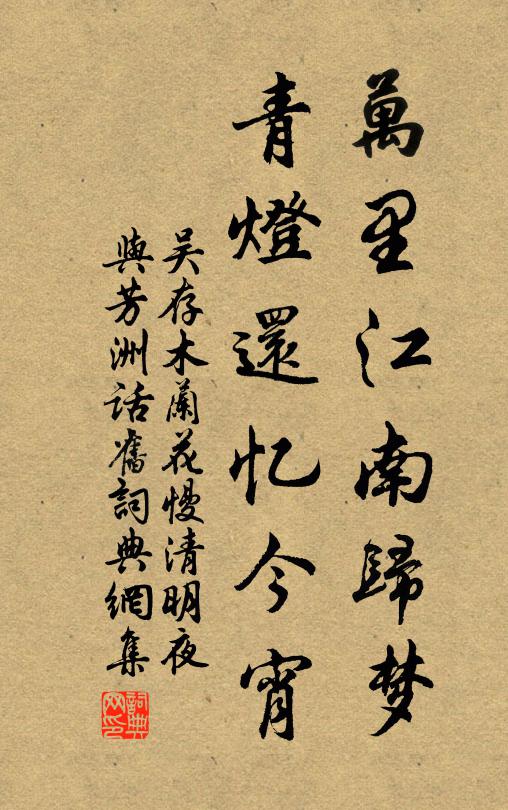 萬里江南歸梦
青燈還忆今宵
吴存木蘭花慢清明夜
與芳洲话舊詞典網集
詞典网印